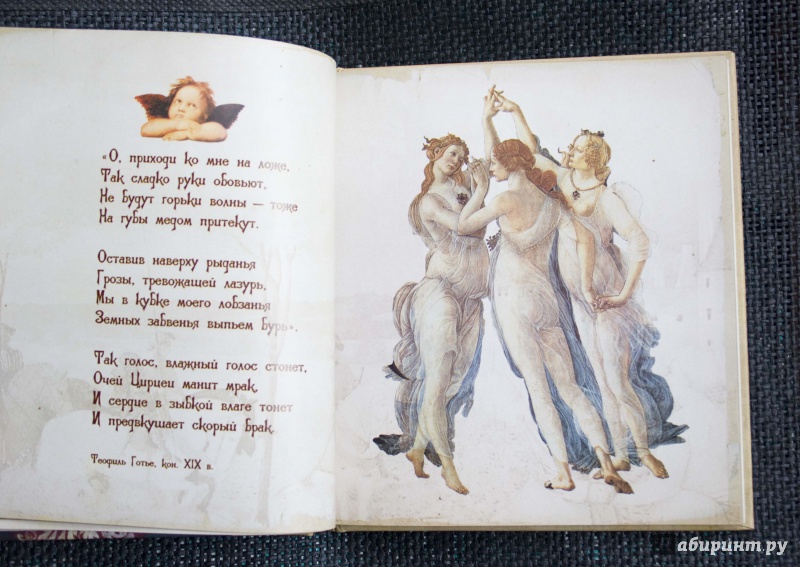 «О, приходи ко мне на ложе,
Так сладко руки обовьют,
Не будут горьки волны — тоже
На губы медом притекут.
Оставив наверху рыданья
Грозы, тревожащей лазурь,
Мы в кубке моего лобзанья
Земных забвенья выпьем бурь».
Так голос, влажный голос стонет,
Очей Цирцеи манит мрак,
И сердце в зыбкой влаге тонет
И предвкушает скорый брак.
Теофиль Готье, кон. XIX в.
абиринт.ру